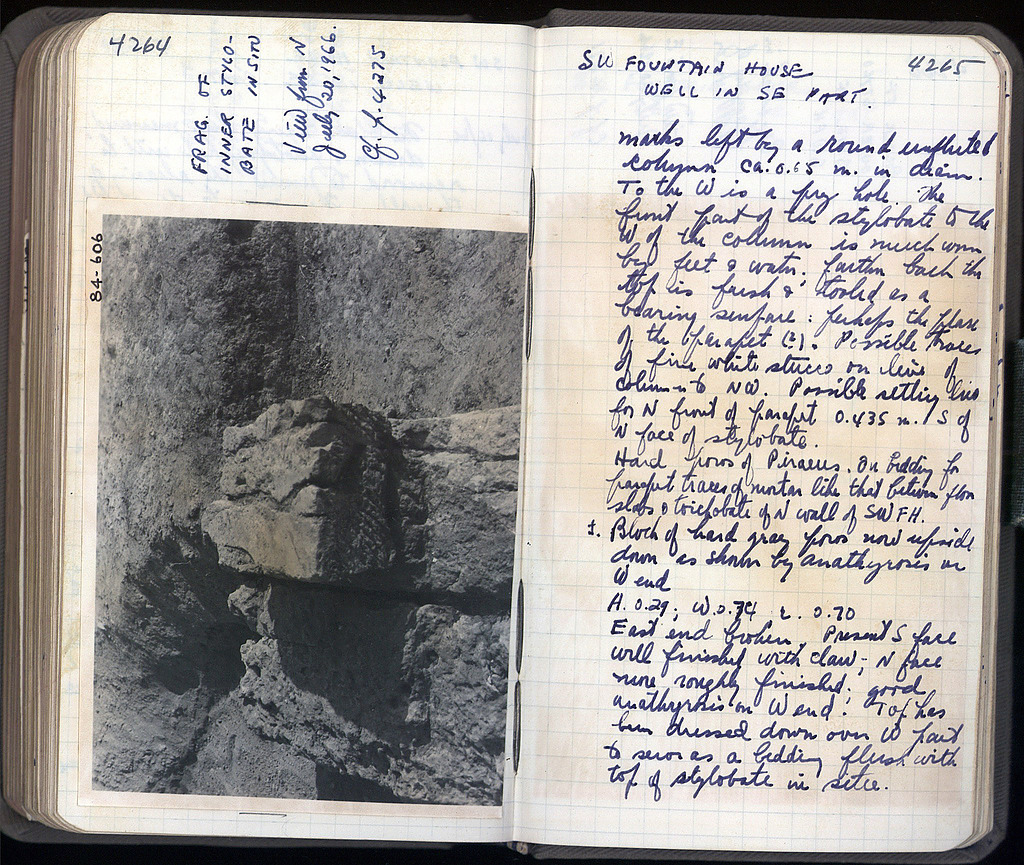 4264
FRAG. OF
INNER STYLO-
BATE IN SITU
View from N
July 20, 1966.
Cf p. 4275
84-606
SW FOUNTAIN HOUSE
4265
WELL IN SE PART.
marks left by a round unfluted
column ca. 0.65 m. in diam.
To the W is a pry hole. The
front part of the stylobate to the
W of the column is much worn
by feet & water. Farther back the
top is fresh & tooled as a
bearing surface: perhaps the place
of the parapet (?). Possible traces
of fine white stucco on line of
column to NW. Possible setting line
for N front of parapet 0.435 m. S of
N face of stylobate.
Hard poros of Piraeus. On bedding for
parapet traces of mortar like that between floor
slabs & toichobate of N wall of SWFH.
Block of hard gray poros now upside
down as shown by anathyrosis on
W end
H. 0.29; W. 0.74 L. 0.70
East end broken. Present S face
well finished with claw; N face
more roughly finished; good
anathyrosis on W end. Top has
been dressed down over W part
to serve as a bedding flush with
top of stylobate in situ.